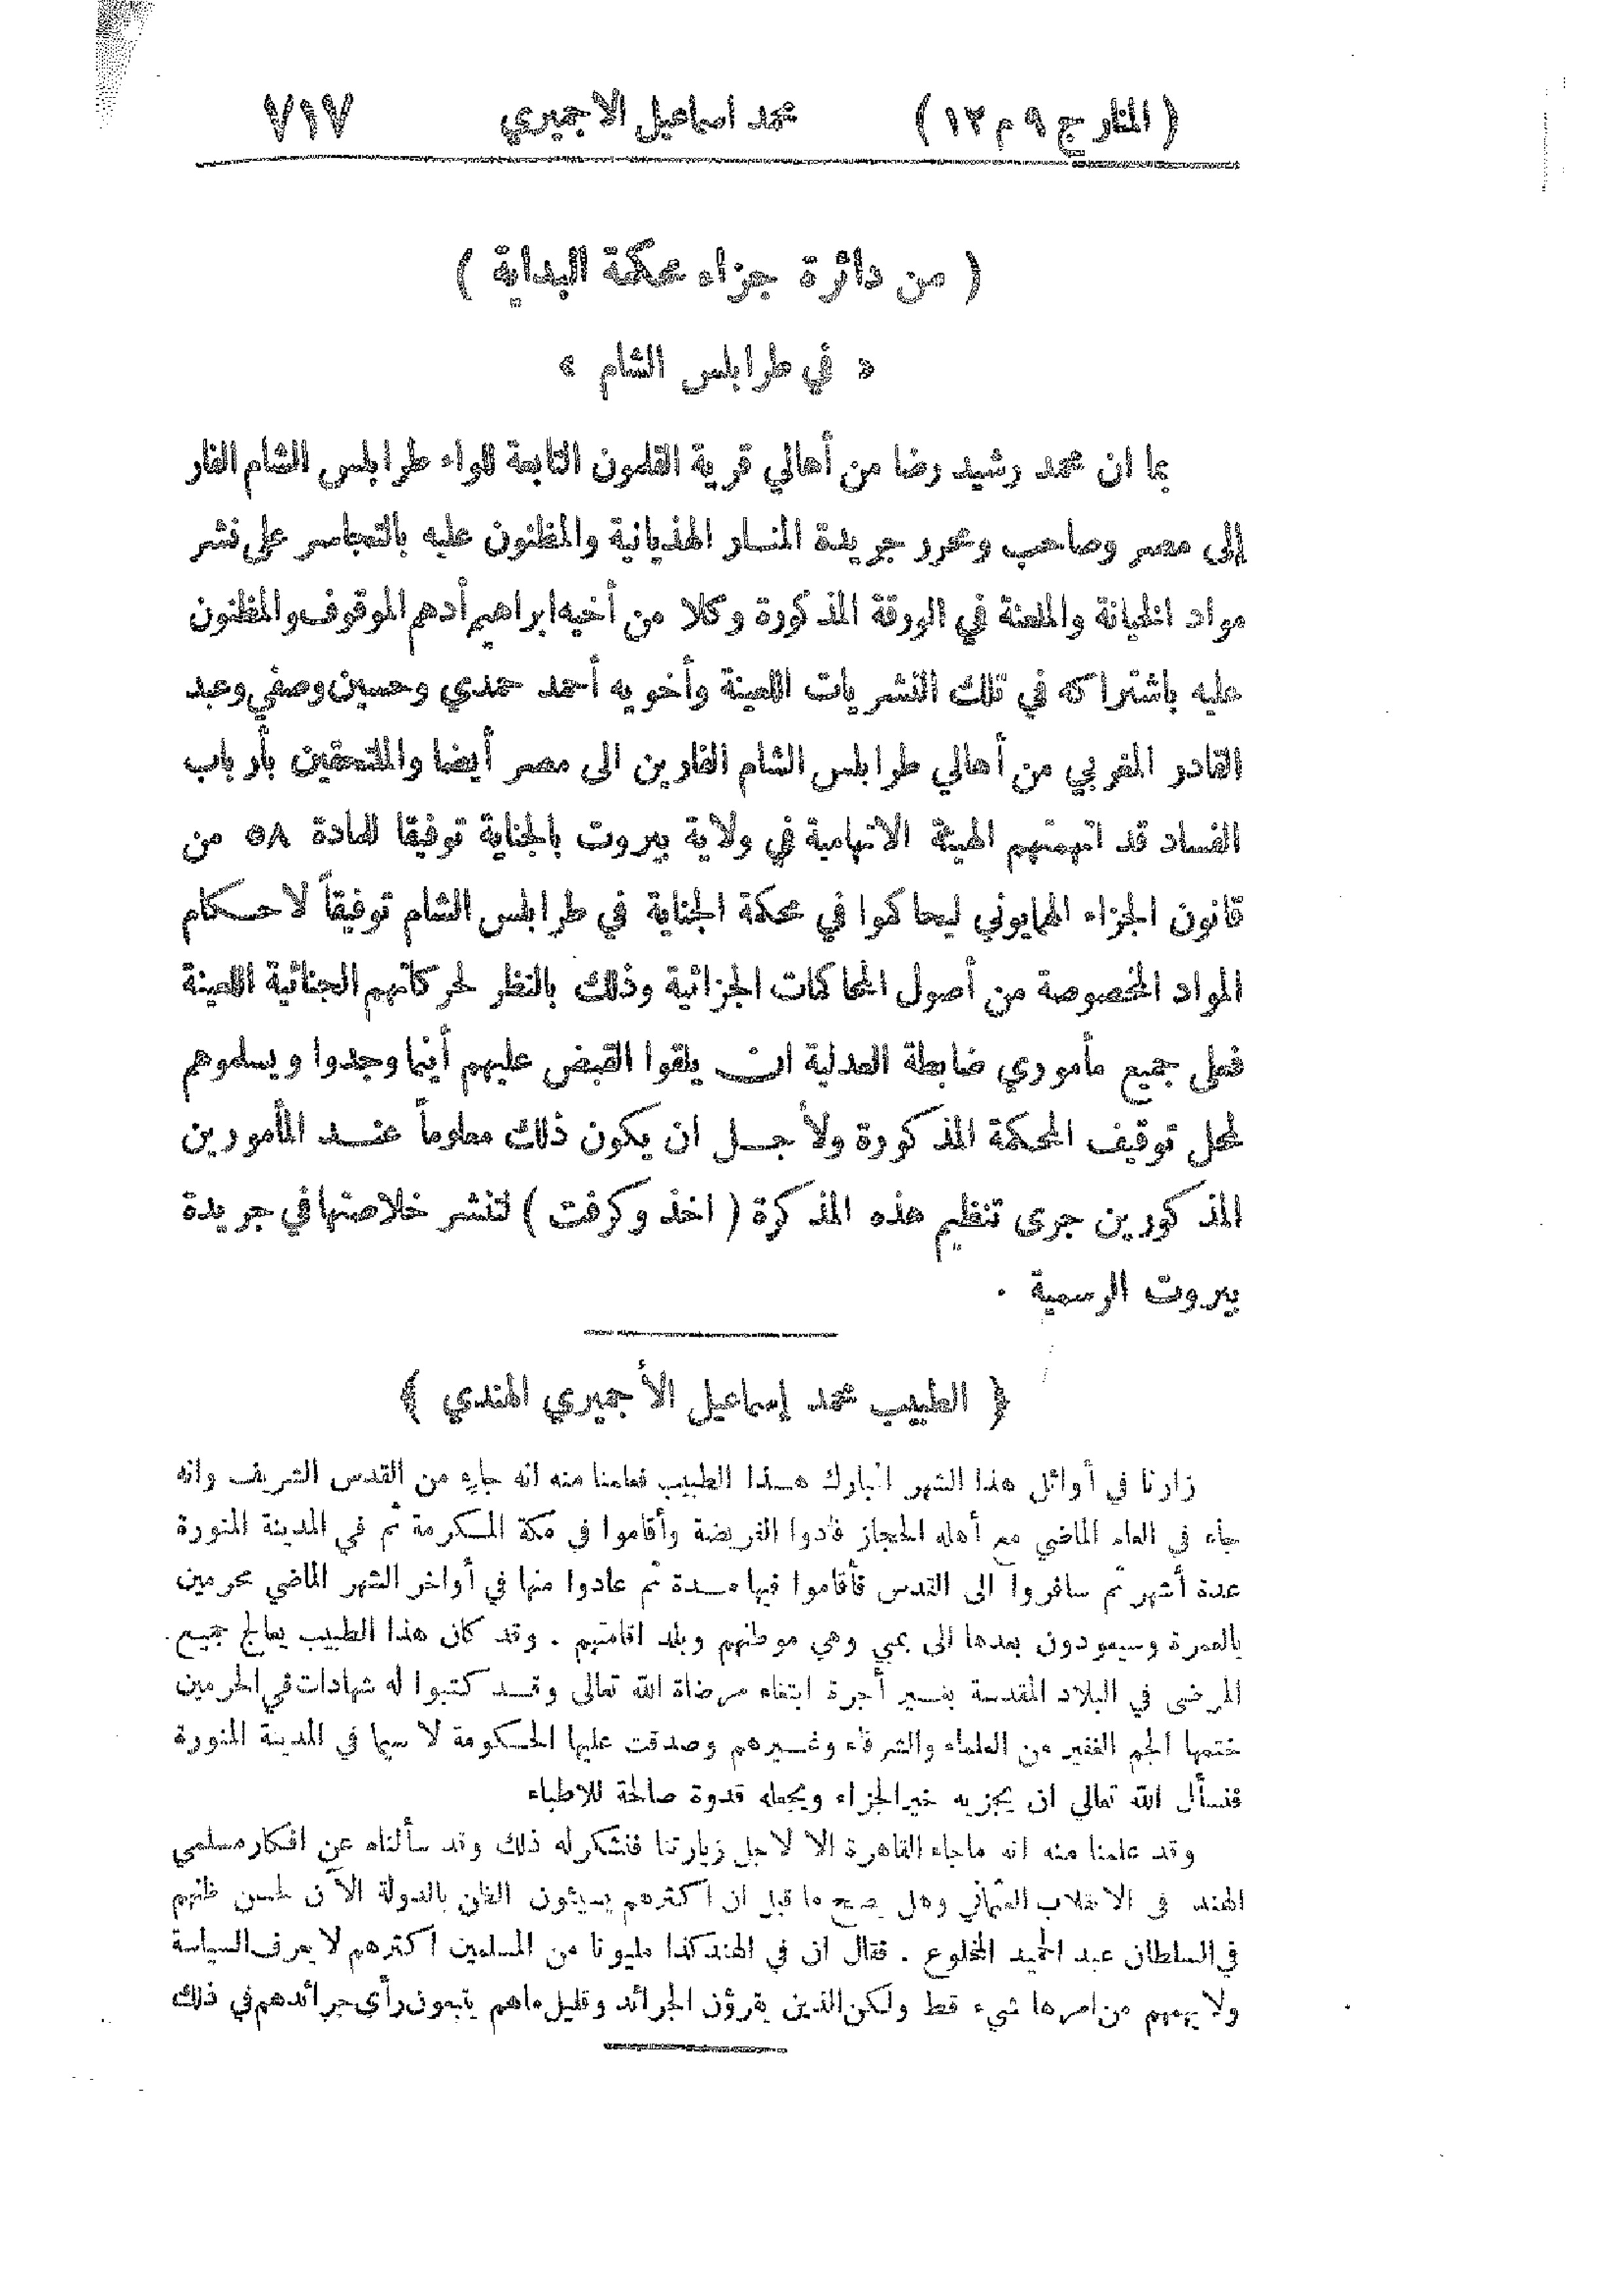 ( المنار ج ٩ م ١٢ ) محمد اسماعيل الاجميري ٧١٧
( من دائرة جزاء محكمة البداية )
« في طرابلس الشام »
بما ان محمد رشيد رضا من أهالي قرية القلمون التابعة للواء طرابلس الشام الفار
إلى مصر وصاحب ومحرر جريدة المنـار الهذيانية والمظنون عليه بالتجاسر على نشر
مواد الخيانة والملعنة في الورقة المذكورة وكلا من أخيه ابراهيم أدهم الموقوف والمظنون
عليه باشتراكه في تلك النشريات اللعينة وأخويه أحمد حمدي وحسين وصفي وعبد
القادر المغربي من أهالي طرابلس الشام الفارين الى مصر أيضا والملتحقين بأرباب
الفساد قد اتهمتهم الهيئة الاتهامية في ولاية بيروت بالجناية توفيقا للمادة ٥٨ من
قانون الجزاء الهمايوني ليحاكموا في محكمة الجناية في طرابلس الشام توفيقاً لاحـكام
المواد المخصوصة من أصول المحاكمات الجزائية وذلك بالنظر لحركاتهم الجنائية اللعينة
فعلى جميع مأموري ضابطة العدلية ان يلقوا القبض عليهم أينما وجدوا ويسلموهم
لمحل توقيف المحكمة المذكورة ولأجـل ان يكون ذلك معلوماً عنـد المأمورين
المذكورين جرى تنظيم هذه المذكرة ( اخذ وكرفت ) لتنشر خلاصتها في جريدة
بيروت الرسمية .
﴿ الطبيب محمد إسماعيل الأجميري الهندي ﴾
زارنا في أوائل هذا الشهر المبارك هـذا الطبيب فعلمنا منه انه جاء من القدس الشريف وانه
جاء في العام الماضي مع أهله الحجاز فأدوا الفريضة وأقاموا في مكة المـكرمة ثم في المدينة المنورة
عدة أشهر ثم سافروا الى القدس فأقاموا فيها مـدة ثم عادوا منها في أواخر الشهر الماضي محرمين
بالعمرة وسيعودون بعدها الى بمبي وهي موطنهم وبلد اقامتهم . وقد كان هذا الطبيب يعالج جميـع
المرضى في البلاد المقدسة بغـير أجرة ابتغاء مرضاة الله تعالى وقـد كتبوا له شهادات في الحرمين
ختمها الجم الغفير من العلماء والشرفاء وغـيرهم وصدقت عليها الحـكومة لا سيما في المدينة المنورة
فنسأل الله تعالى ان يجزيه خير الجزاء ويجعله قدوة صالحة للاطباء
وقد علمنا منه انه ماجاء القاهرة الا لاجل زيارتنا فنشكر له ذلك وقد سألناه عن افكار مسلمي
الهند في الانقلاب العثماني وهل يصح ما قيل ان اكثرهم يسيئون الظن بالدولة الآن لحسن ظنهم
في السلطان عبد الحميد المخلوع . فقال ان في الهند كذا مليونا من المسلمين اكثرهم لا يعرف السياسة
ولا يهمهم من امرها شيء قط ولكن الذين يقرؤن الجرائد وقليل ماهم يتبعون رأي جرائدهم في ذلك